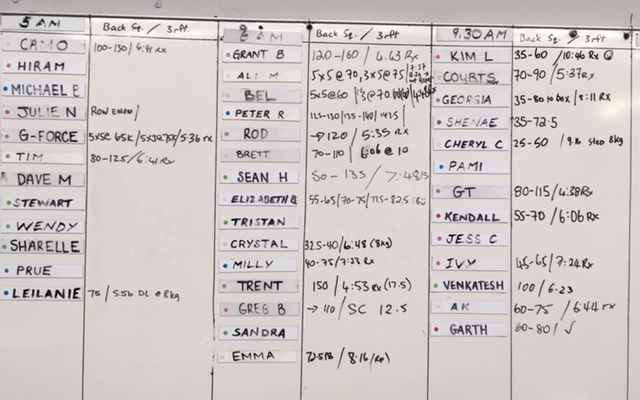 5 AM
Back Sq. / 3rft
CAMO 100-130 / 6:41 Rx
HIRAM
MICHAEL B
JULIE N Row Emom/
G-FORCE 5x5@ 65k / 5x3@75k / 5:36 rx
TIM 80-125 / 6:41 Rx
DAVE M
STEWART
WENDY
SHARELLE
PRUE
LEILANIE 75 / 5:56 DL @ 8kg
AM
Back Sq. / 3rft
GRANT B 120-160 / 4:43 Rx
ALI M 5x5@70, 3x5@75
BEL 5x5@60
PETER R
ROD → 120 / 5:35 RX
BRETT 70-110 / 6:06 @ 10
SEAN H 80 - 135 / 7:48
ELIZABETH B 55-65/70-75/
TRISTAN
CRYSTAL 32.5-40 / 6:48 (8kg)
MILLY 40-75 / 7:23 Rx
TRENT 150 / 4:53 Rx (17.5)
GREG B → 110 / SC 12.5
SANDRA
EMMA 72.5 / 8:16 (Rx)
9.30AM
Back Sq. / 3rft
KIM L 35-60 / 10:40 Rx
COURTS 70-90 / 5:37 Rx
GEORGIA 35-80 to box / 8:11 Rx
SHENAE 35-72.5
CHERYL C 25-50 / step 8kg
PAMI
GT 80-115 / 4:38 Rx
KENDALL 55-70 / 6:06 Rx
JESS C
IVY 45-65 / 7:24 Rx
VENKATESH 100 / 6:23
AK 60-75 / 6:44 rx
GARTH 60-80 / ✓